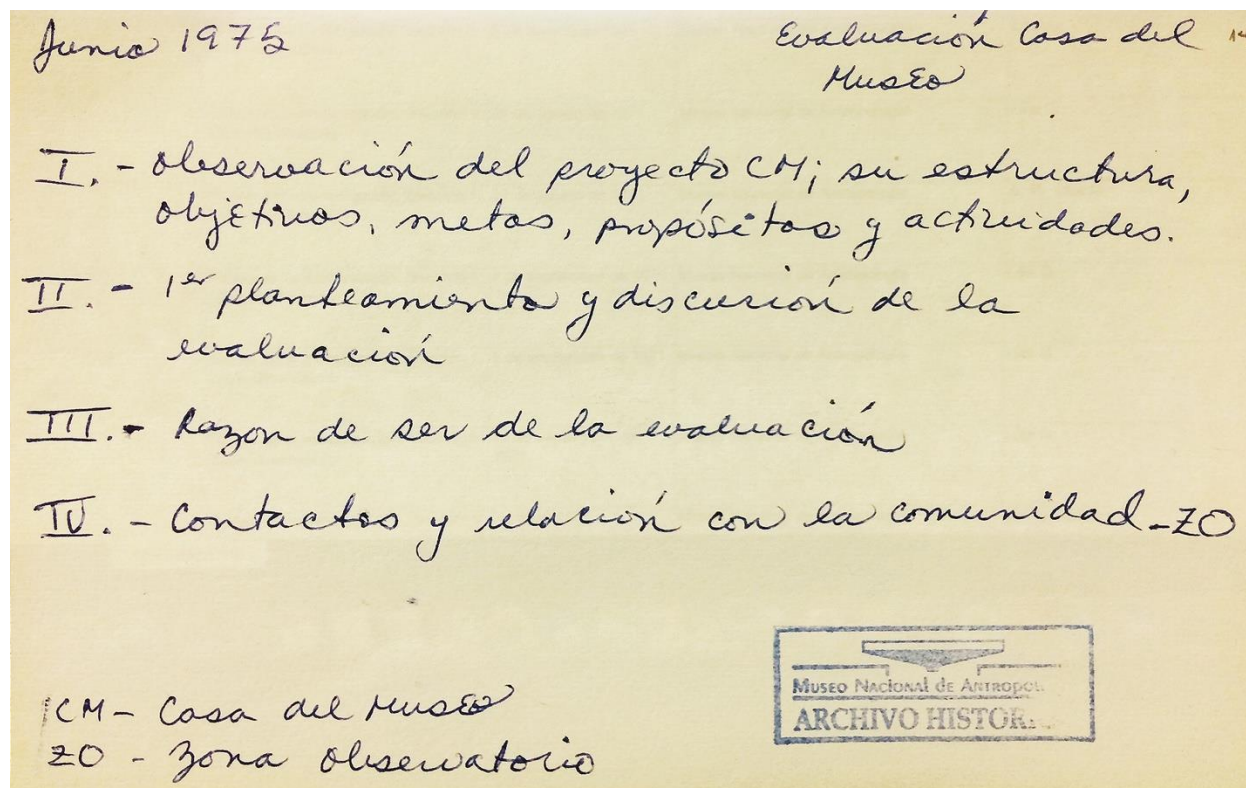 Junio 1975
Evaluación Casa del
Museo
I.- Observación del proyecto CM; su estructura,
objetivos, metas, propósitos y actividades.
II.- 1er planteamiento y discusión de la
evaluación
III.- Razon de ser de la evaluación
IV.- Contactos y relación con la comunidad-ZO
CM- Casa del Museo
ZO - Zona Observatorio
Museo Nacional de
ARCHIVO